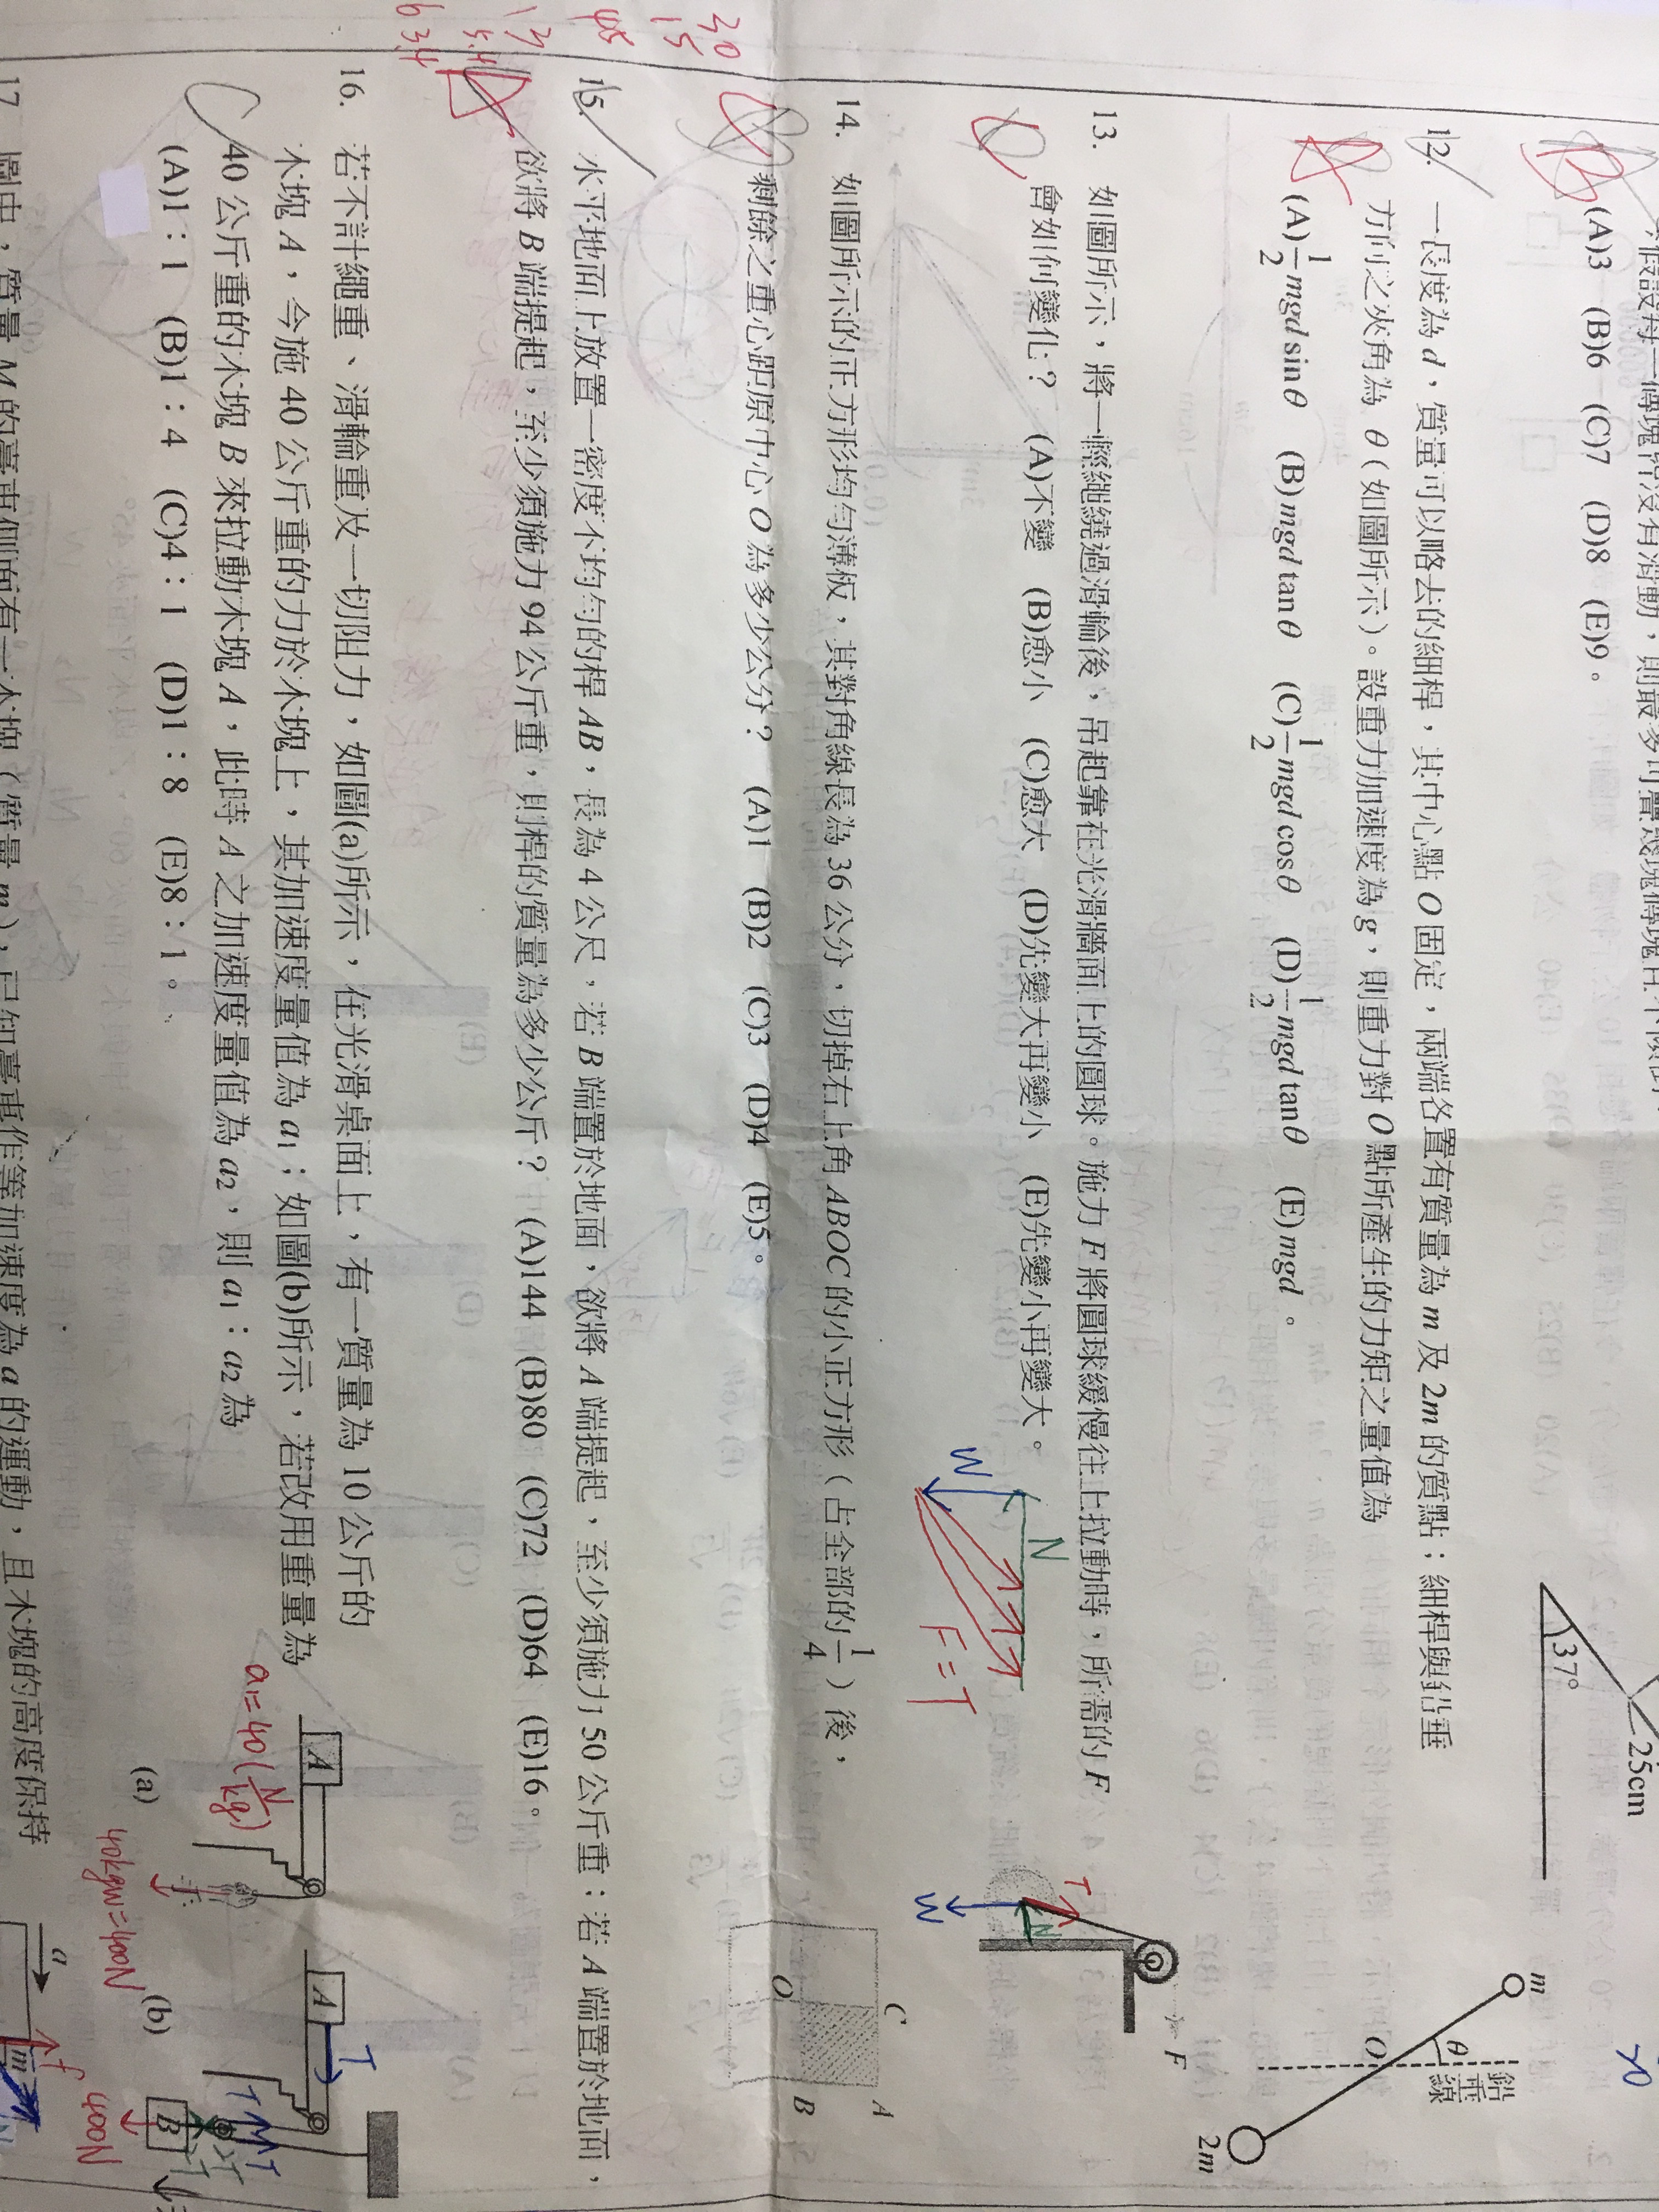 (A)3 (B)6 (C)7 (D)8 (E)9。
37°
25cm
12. 一長度為 d,質量可以略去的細桿,其中心點 O 固定,兩端各置有質量為 m 及 2m 的質點;細桿與鉛垂
方向之夾角為 θ(如圖所示)。設重力加速度為 g,則重力對 O 點所產生的力矩之量值為
(A)1/2 mgd sinθ (B)mgd tanθ (C)1/2 mgd cosθ (D)1/2 mgd tanθ (E)mgd。
m
θ
鉛垂線
O
2m
13. 如圖所示,將一輕繩繞過滑輪後,吊起靠在光滑牆面上的圓球。施力 F 將圓球緩慢往上拉動時,所需的 F
會如何變化? (A)不變 (B)愈小 (C)愈大 (D)先變大再變小 (E)先變小再變大。
N
W
F=T
T
N
W
F
14. 如圖所示的正方形均勻薄板,其對角線長為 36 公分,切掉右上角 ABOC 的小正方形(占全部的1/4)後,
剩餘之重心距原中心 O 為多少公分? (A)1 (B)2 (C)3 (D)4 (E)5。
C
A
O
B
15. 水平地面上放置一密度不均勻的桿 AB,長為 4 公尺,若 B 端置於地面,欲將 A 端提起,至少須施力 50 公斤重;若 A 端置於地面,
欲將 B 端提起,至少須施力 94 公斤重,則桿的質量為多少公斤? (A)144 (B)80 (C)72 (D)64 (E)16。
16. 若不計繩重、滑輪重及一切阻力,如圖(a)所示,在光滑桌面上,有一質量為 10 公斤的
木塊 A,今施 40 公斤重的力於木塊上,其加速度量值為 a1;如圖(b)所示,若改用重量為
40 公斤重的木塊 B 來拉動木塊 A,此時 A 之加速度量值為 a2,則 a1:a2 為
(A)1:1 (B)1:4 (C)4:1 (D)1:8 (E)8:1。
A
手
a1=40(N/kg)
40kgw=400N
(a)
A
T
T
T
2T
B
400N
(b)
的臺車側面有一木塊(質量 m),已知臺車作等加速度為 a 的運動,且木塊的高度保持
a
f
m